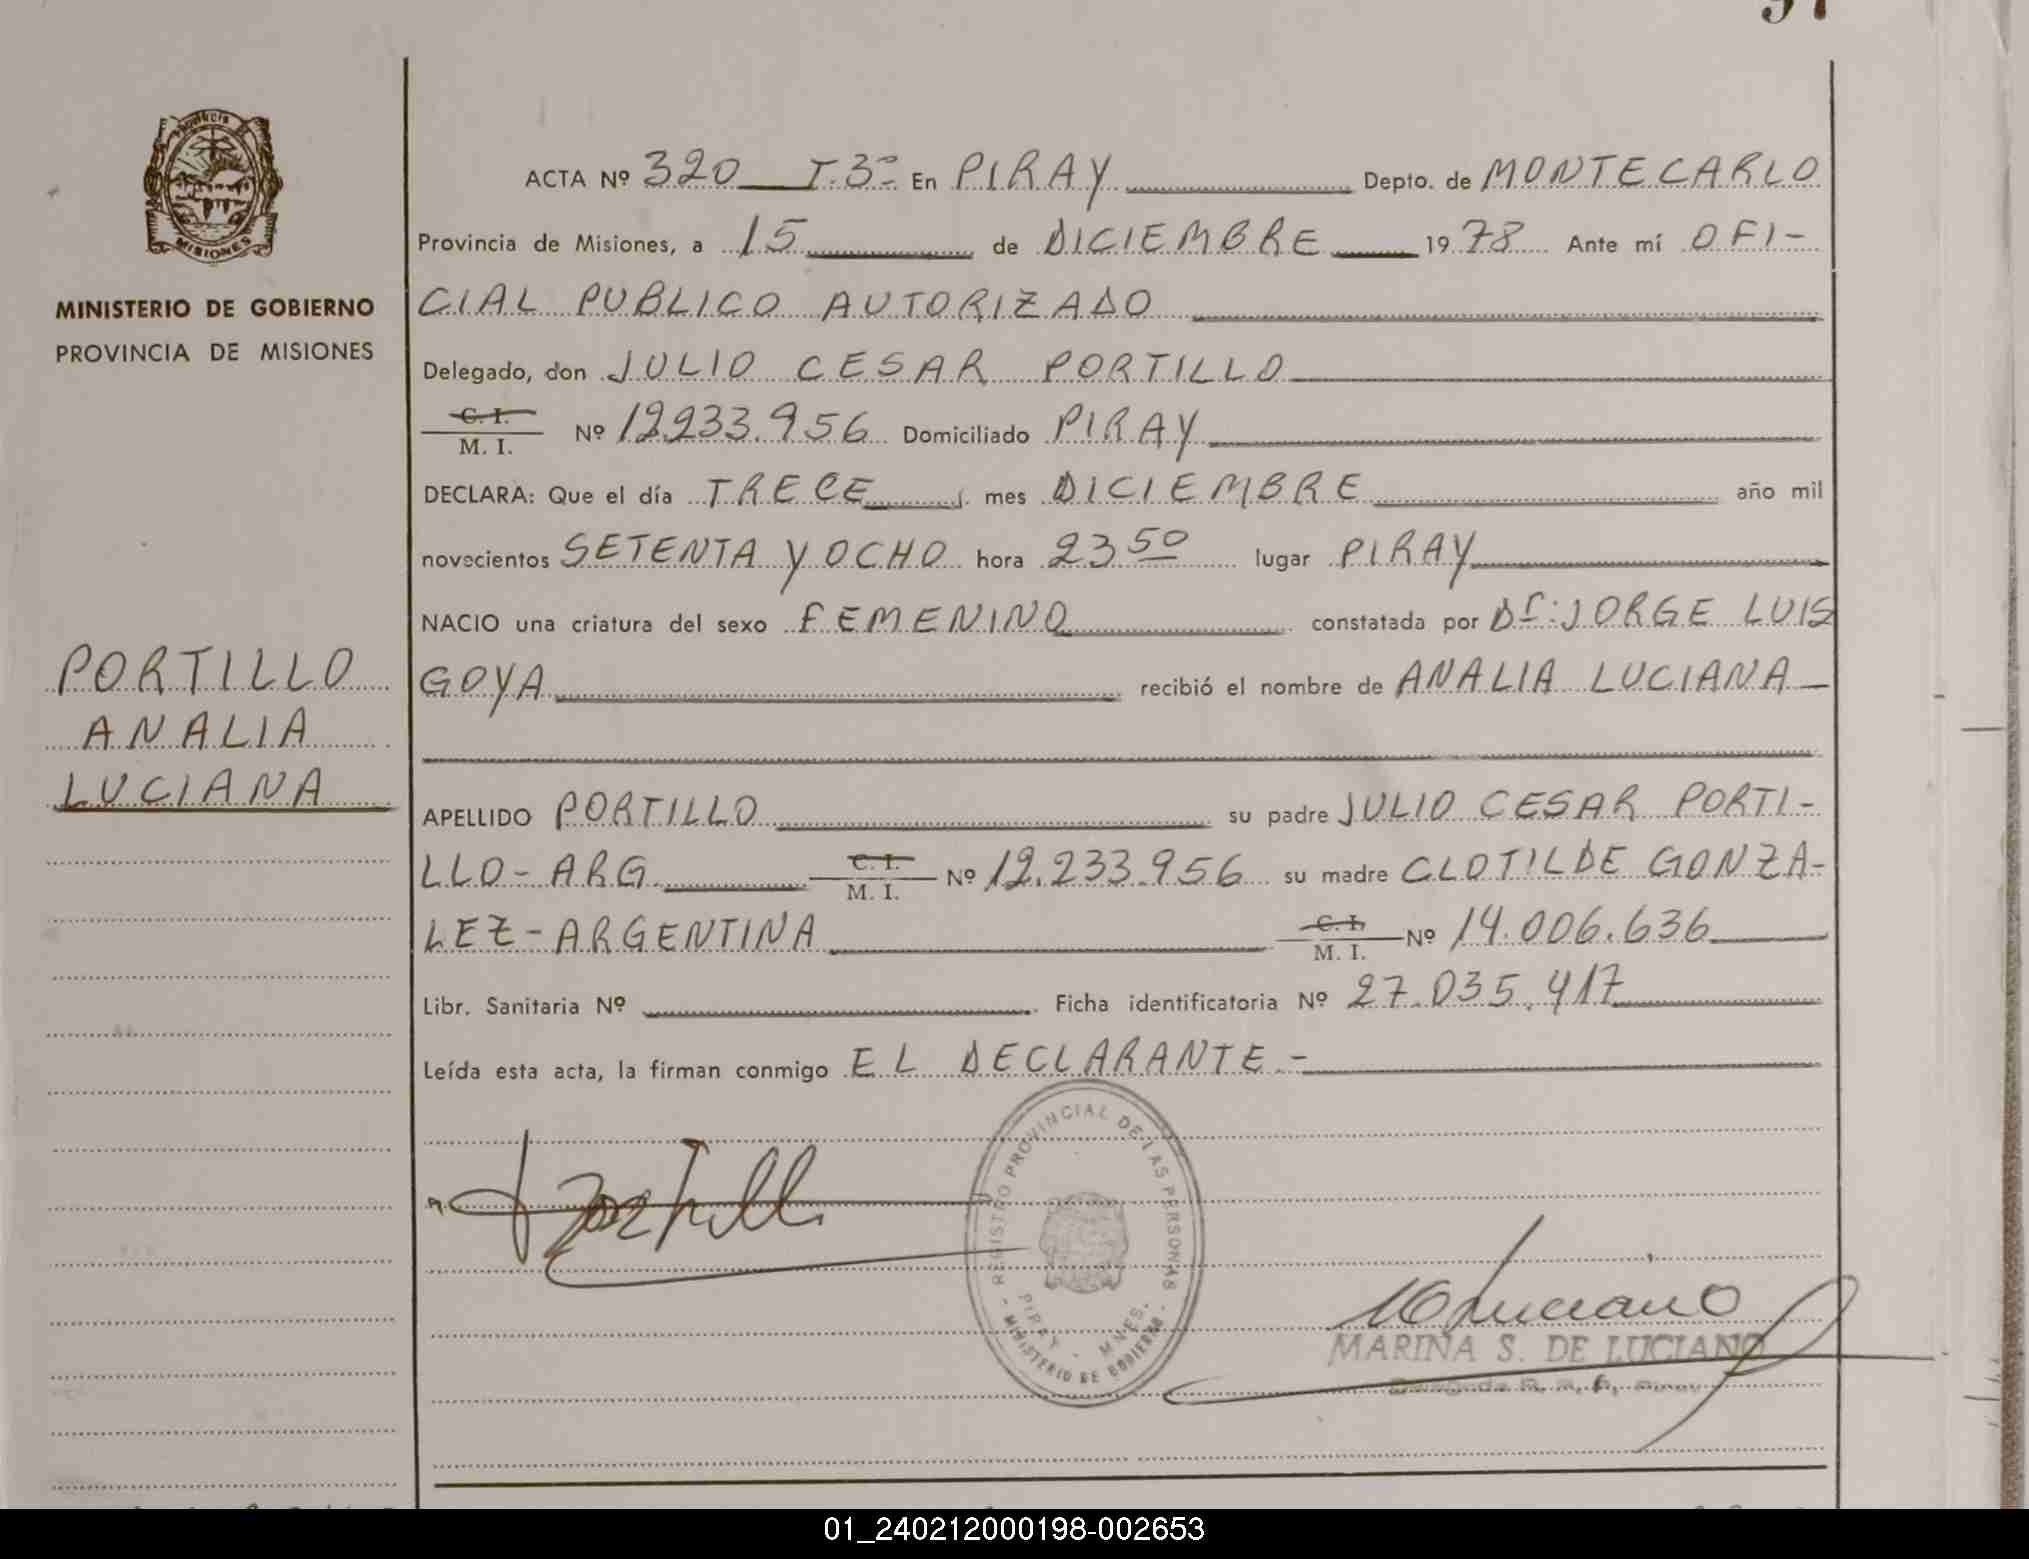 PROVINCIA DE
MISIONES
MINISTERIO DE GOBIERNO
PROVINCIA DE MISIONES
PORTILLO
ANALIA
LUCIANA
ACTA Nº 320 T.3º En PIRAY Depto. de MONTECARLO
Provincia de Misiones, a 15 de DICIEMBRE 1978 Ante mí OFI-
CIAL PUBLICO AUTORIZADO
Delegado, don JULIO CESAR PORTILLO
C. I.
M. I. Nº 12.233.956 Domiciliado PIRAY
DECLARA: Que el día TRECE mes DICIEMBRE año mil
novecientos SETENTA Y OCHO hora 23 50 lugar PIRAY
NACIO una criatura del sexo FEMENINO constatada por Dr: JORGE LUIS
GOYA recibió el nombre de ANALIA LUCIANA
APELLIDO PORTILLO su padre JULIO CESAR PORTI-
LLO - ARG. C. I. M. I. Nº 12.233.956 su madre CLOTILDE GONZA-
LEZ - ARGENTINA C. I. M. I. Nº 14.006.636
Libr. Sanitaria Nº Ficha identificatoria Nº 27.035.417
Leída esta acta, la firman conmigo EL DECLARANTE.-
REGISTRO PROVINCIAL DE LAS PERSONAS
PIRAY - MNES.
- MINISTERIO DE GOBIERNO -
MARINA S. DE LUCIANO
01_240212000198-002653